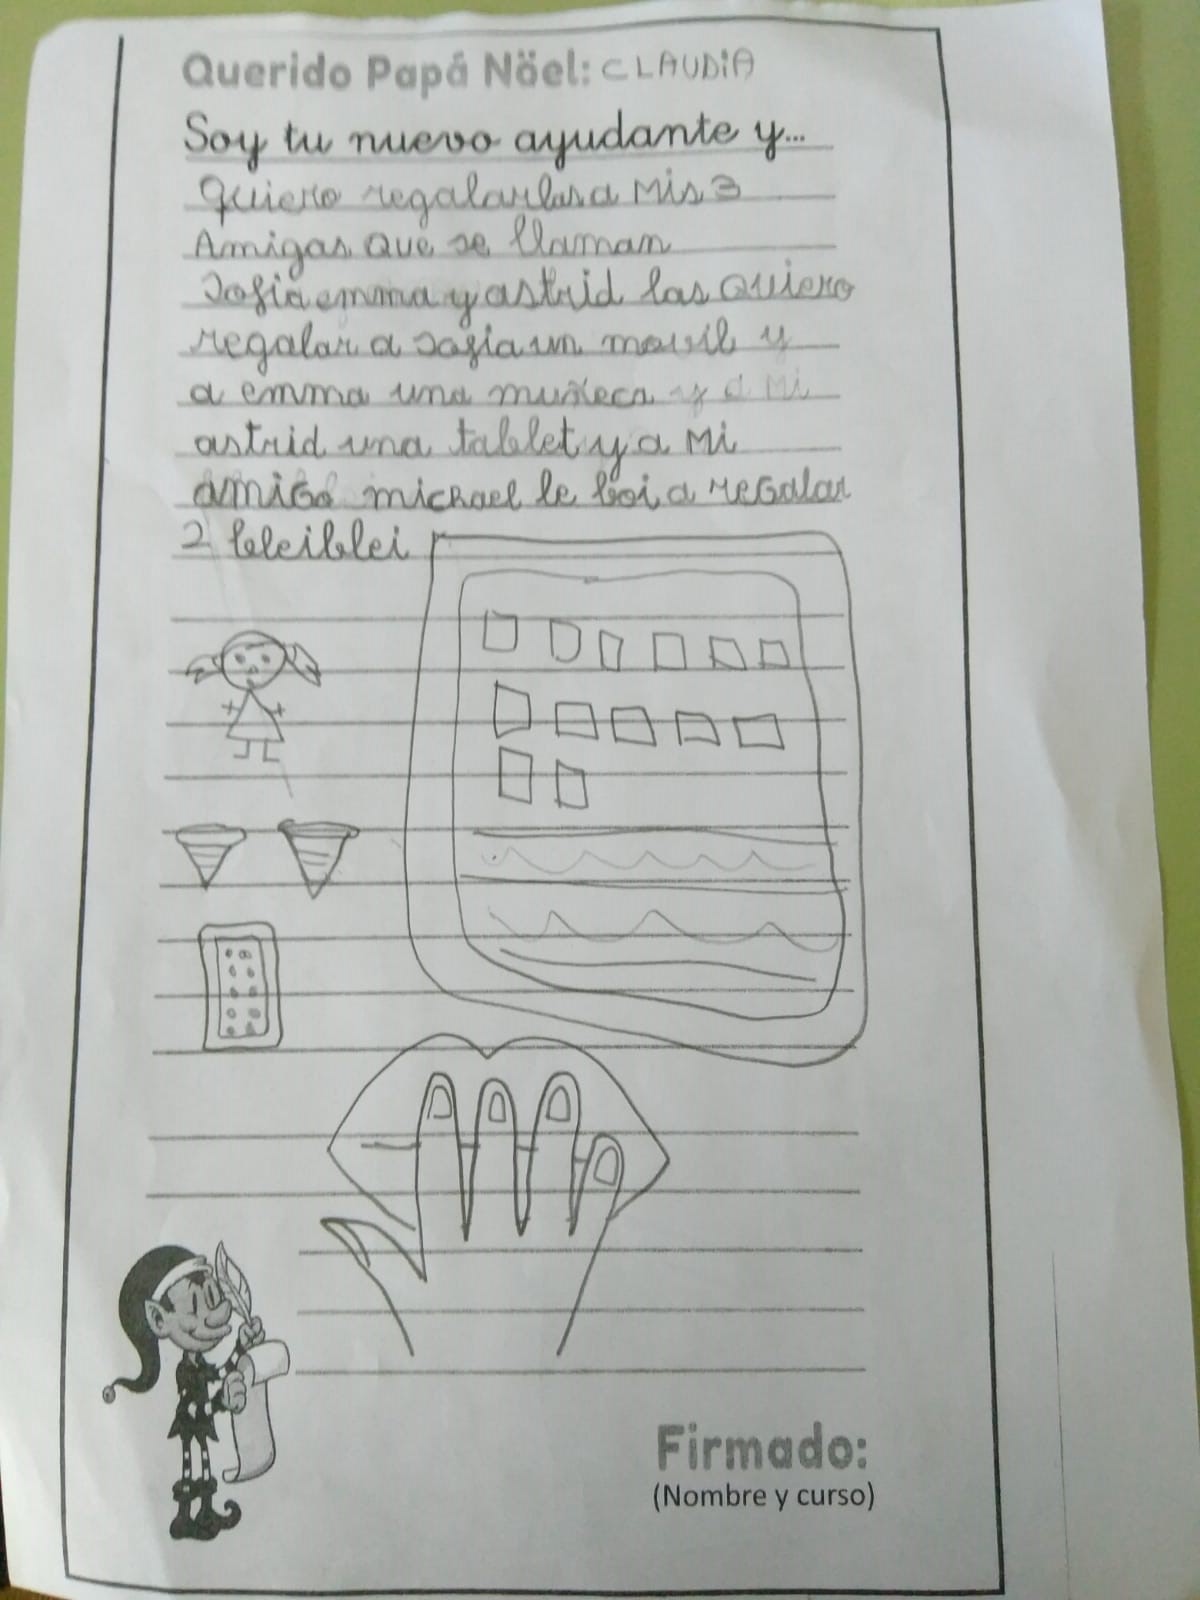 Querido Papá Nöel: CLAUDiA
Soy tu nuevo ayudante y...
quiero regalarlas a Mis 3
Amigas que se llaman
Sofia emma y astrid las quiero
regalar a sofia un movil y
a emma una muñeca y a Mi
astrid una tablet y a Mi
amigo michael le boi a regalar
2 bleiblei
Firmado:
(Nombre y curso)